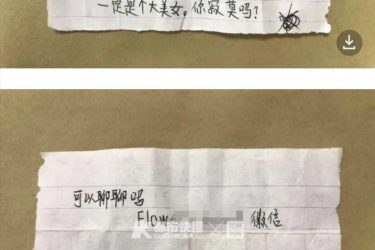 一定是个大美女。你寂寞吗?
可以聊聊吗
Flow
微信
都市快报